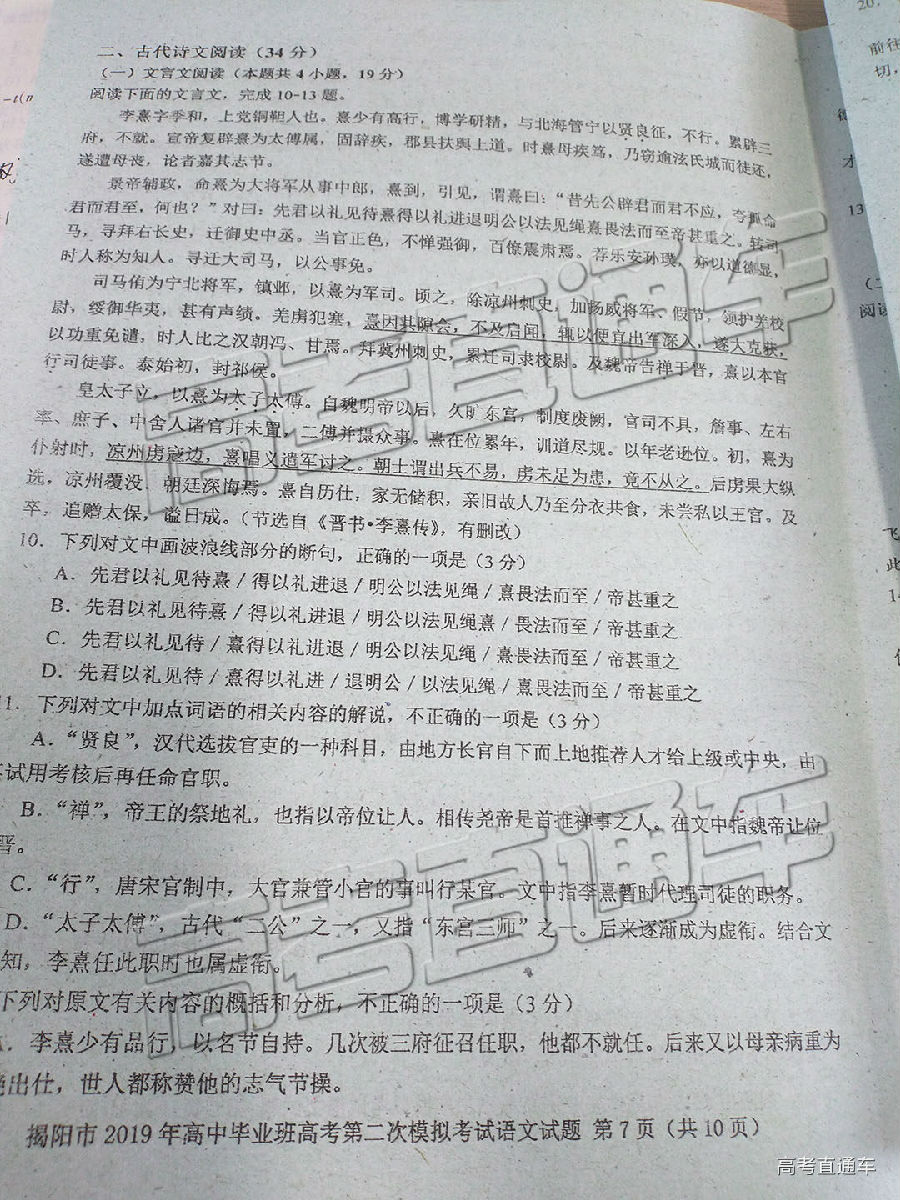 二、古代诗文阅读（34 分）
（一）文言文阅读（本题共 4 小题，19 分）
阅读下面的文言文，完成 10-13 题。
李熹字季和，上党铜鞮人也。熹少有高行，博学研精，与北海管宁以贤良征，不行。累辟三
府，不就。宣帝复辟熹为太傅属，固辞疾，郡县扶舆上道。时熹母疾笃，乃窃逾泫氏城而徒还，
遂遭母丧，论者嘉其志节。
景帝辅政，命熹为大将军从事中郎，熹到，引见，谓熹曰：“昔先公辟君而君不应，今孤命
君而君至，何也？”对曰：先君以礼见待熹得以礼进退明公以法见绳熹畏法而至帝甚重之。转司
马，寻拜右长史，迁御史中丞。当官正色，不惮强御，百僚震肃焉。荐乐安孙璞，亦以道德显，
时人称为知人。寻迁大司马，以公事免。
司马伷为宁北将军，镇邺，以熹为军司。顷之，除凉州刺史，加扬威将军、假节，领护羌校
尉，绥御华夷，甚有声绩。羌虏犯塞，熹因其隙会，不及启闻，辄以便宜出军深入，遂大克获，
以功重免谴，时人比之汉朝冯、甘焉。拜冀州刺史，累迁司隶校尉。及魏帝告禅于晋，熹以本官
行司徒事。泰始初，封祁侯。
皇太子立，以熹为太子太傅。自魏明帝以后，久旷东宫，制度废阙，官司不具，詹事、左右
率、庶子、中舍人诸官并未置，二傅并摄众事。熹在位累年，训道尽规。以年老逊位。初，熹为
仆射时，凉州虏寇边，熹唱义遣军讨之。朝士谓出兵不易，虏未足为患，竟不从之。后虏果大纵
逸，凉州覆没，朝廷深悔焉。熹自历仕，家无储积，亲旧故人乃至分衣共食，未尝私以王官。及
卒，追赠太保，谥曰成。（节选自《晋书·李熹传》，有删改）
10．下列对文中画波浪线部分的断句，正确的一项是（3 分）
A．先君以礼见待熹 / 得以礼进退 / 明公以法见绳 / 熹畏法而至 / 帝甚重之
B．先君以礼见待熹 / 得以礼进退 / 明公以法见绳熹 / 畏法而至 / 帝甚重之
C．先君以礼见待 / 熹得以礼进退 / 明公以法见绳 / 熹畏法而至 / 帝甚重之
D．先君以礼见待 / 熹得以礼进 / 退明公 / 以法见绳 / 熹畏法而至 / 帝甚重之
1．下列对文中加点词语的相关内容的解说，不正确的一项是（3 分）
A．“贤良”，汉代选拔官吏的一种科目，由地方长官自下而上地推荐人才给上级或中央，由
试用考核后再任命官职。
B．“禅”，帝王的祭地礼，也指以帝位让人。相传尧帝是首推禅事之人。在文中指魏帝让位
晋。
C．“行”，唐宋官制中，大官兼管小官的事叫行某官。文中指李熹暂时代理司徒的职务。
D．“太子太傅”，古代“二公”之一，又指“东宫三师”之一。后来逐渐成为虚衔。结合文
知，李熹任此职时也属虚衔。
下列对原文有关内容的概括和分析，不正确的一项是（3 分）
．李熹少有品行，以名节自持。几次被三府征召任职，他都不就任。后来又以母亲病重为
出仕，世人都称赞他的志气节操。
揭阳市 2019 年高中毕业班高考第二次模拟考试语文试题 第 7 页（共 10 页）
高考直通车
高考直通车
高考直通车
20．
前往
切，
才
13
（二
阅读
飞
此
14